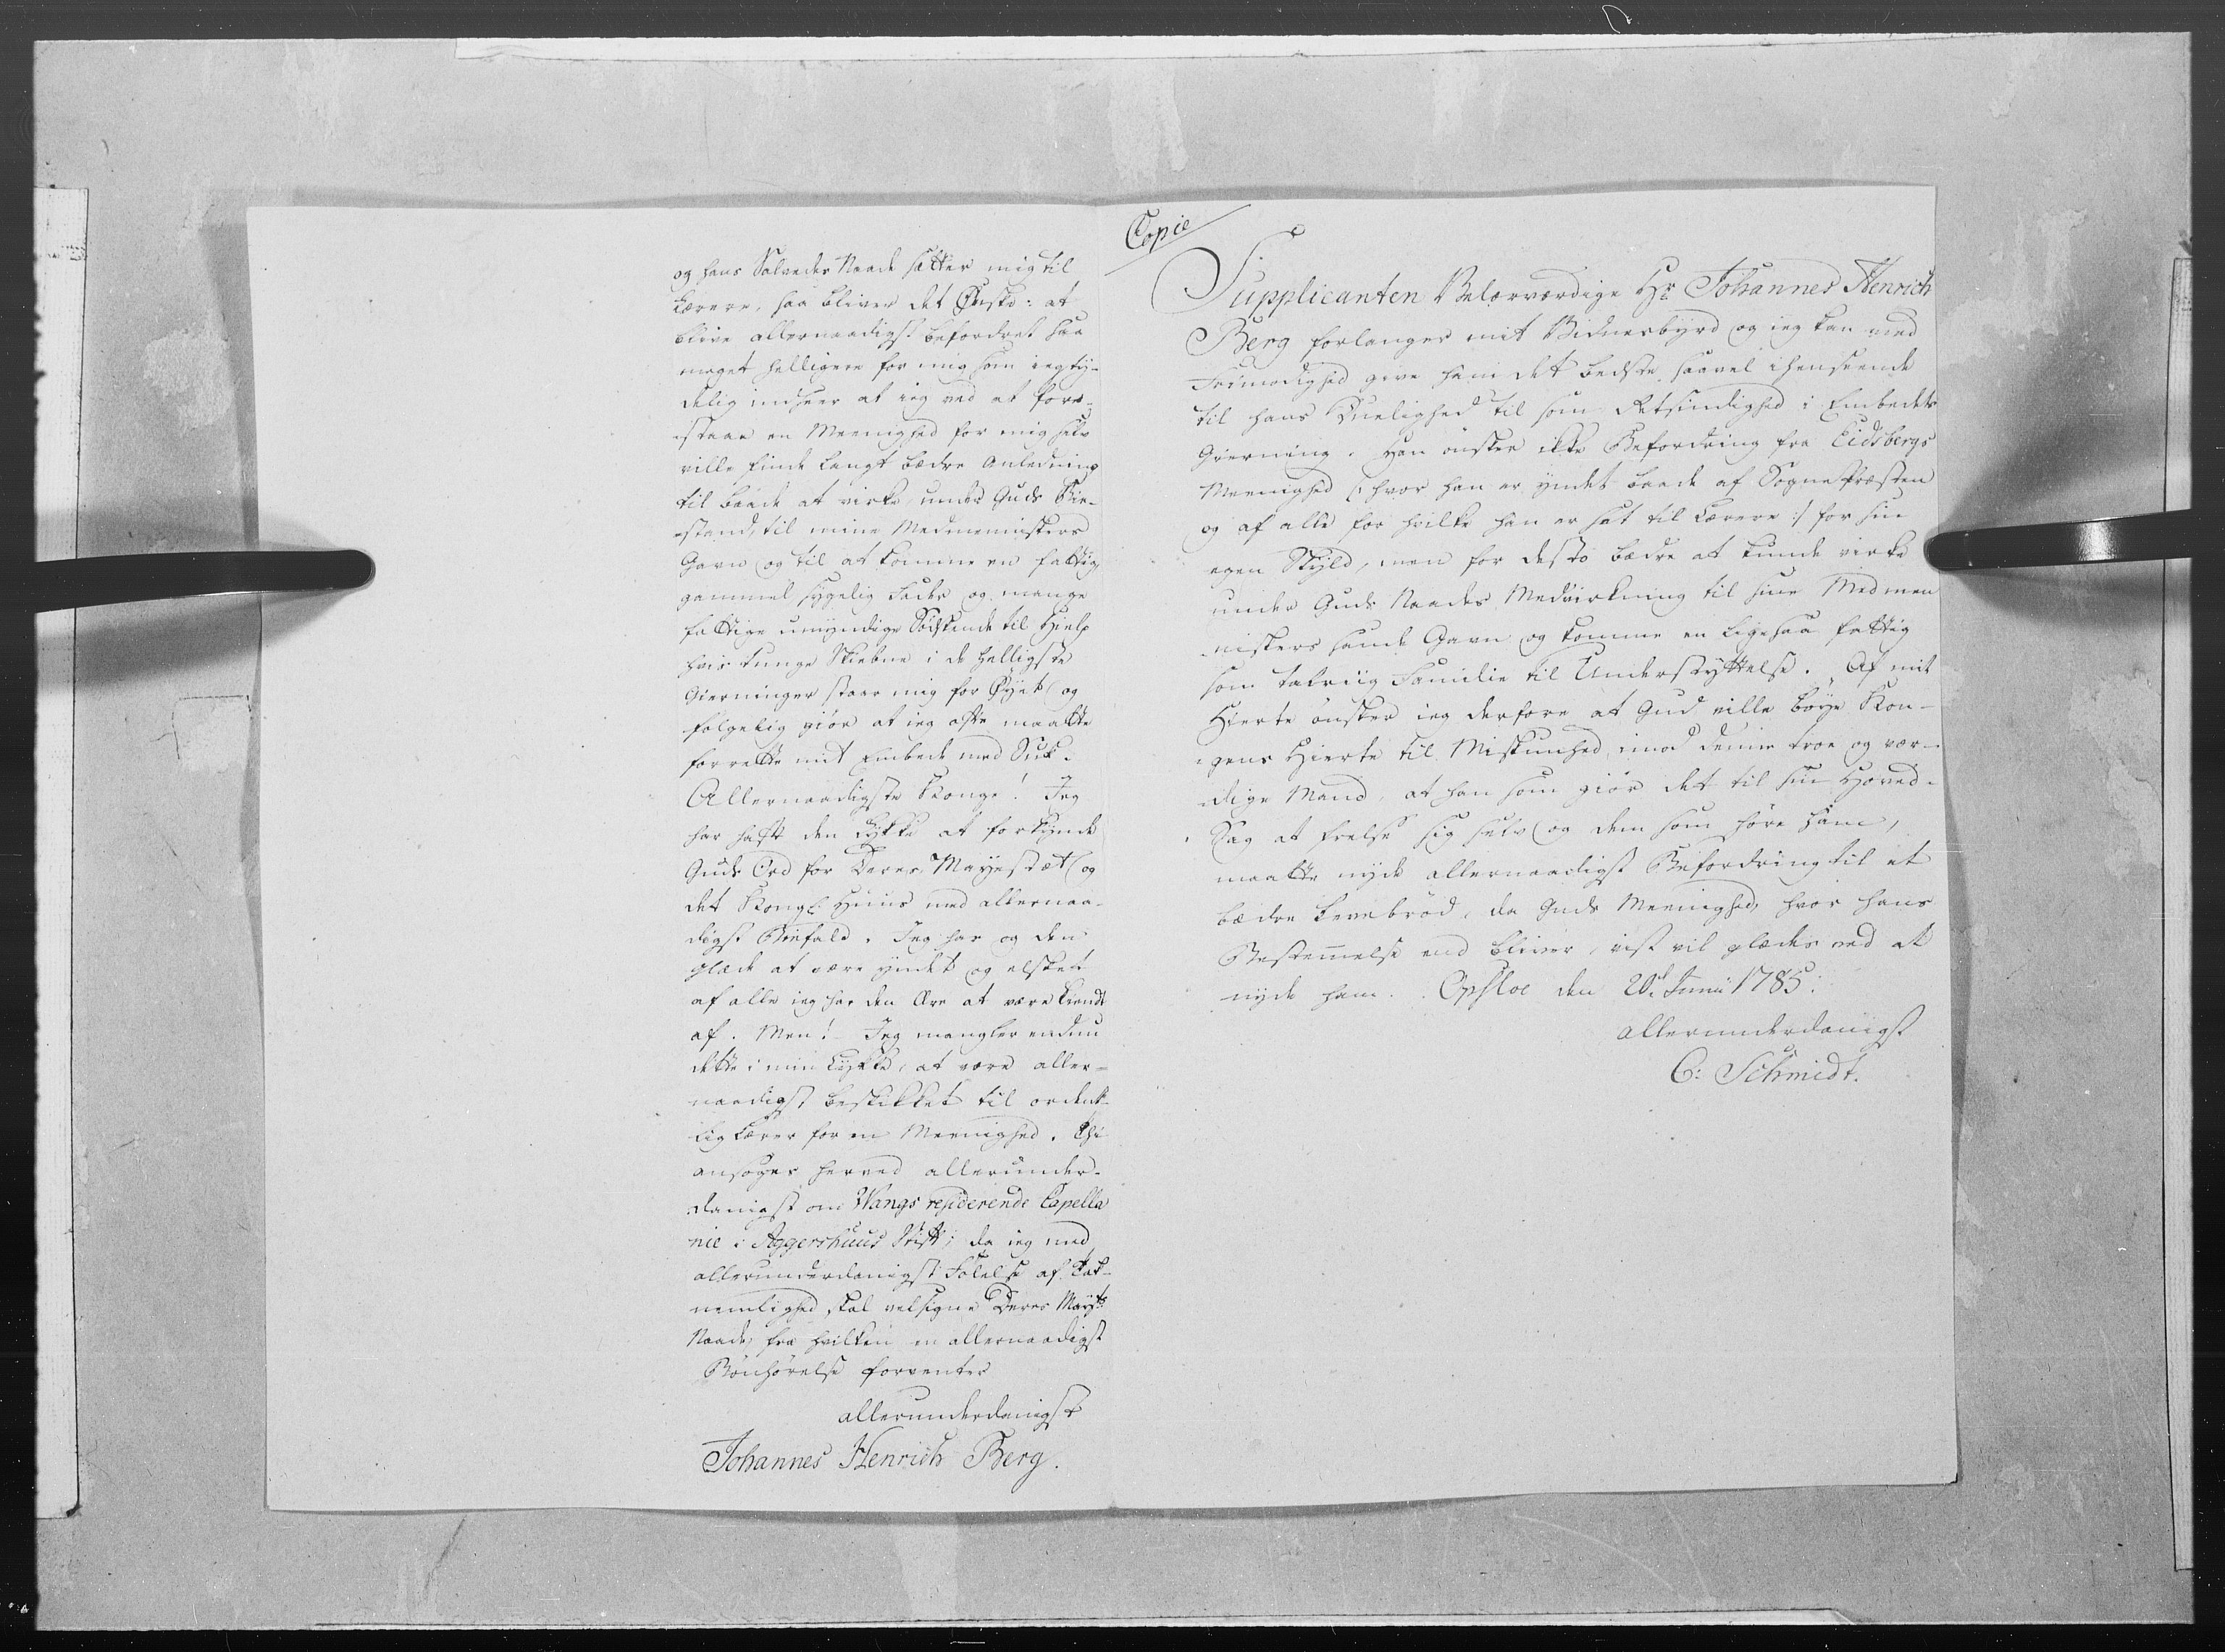 og hans Salvedes Naade sætter mig til
Lærere, saa bliver det Ønske: at
blive allernaadigst befordret saa
meget helligere for mig som ieg ty-
delig indseer at ieg ved at fore-
staae en Meenighed for mig selv
ville finde langt bædre Anledning
til baade at virke, under Guds Bie-
stand, til mine Medmenniskers
Gavn og til at komme en fattig
gammel sygelig Fader og mange
fattige umyndige Sødskende til Hielp
hvis tunge Skiebne i de helligste
Gierninger staar mig for Øyet og
følgelig giør at ieg ofte maatte
forrette mit Embede med Suk.
Allernaadigste Konge! Jeg
har haft den Lykke at forkynde
Guds Ord for Deres Mayestæt og
det Kongl: Huus med allernaa-
digst Biefald. Jeg har og den
Glæde at være yndet og elsket
af alle ieg har den Ære at være kiendt
af. Men! Jeg mangler endnu
dette i min Lykke, at være aller-
naadigst beskikket til ordent-
lig Lærer for en Meenighed. Thi
ansøges herved allerunder-
danigst om Wangs residerende Capella
nie i Aggershuus Stift; da ieg med
allerunderdanigst Følelse af Tak-
nemlighed skal velsigne Deres Mayts
Naade, fra hvilken en allernaadigst
Bønhørelse forventes
allerunderdanigst
Johannes Henrich Berg.
Copie
Supplicanten Velærværdige Hr Johannes Henrich
Berg forlanger mit Vidnesbyrd og ieg kan med
Frimodighed give ham det bedste saavel i henseende
til hans Duelighed til som Retsindighed i Embedets
Gierning. Han ønsker ikke Befordring fra Eidsbergs
Meenighed (: hvor han er yndet baade af Sognepræsten
og af alle for hvilke han er sat til Lærere :) for sin
egen Skyld, men for desto bædre at kunde virke
under Guds Naades Medvirkning til sine Medmen
niskers sande Gavn og komme en ligesaa fattig
som talriig Familie til Understyttelse. Af mit
Hierte ønsker ieg derfore at Gud ville bøye Kon-
gens Hierte til Miskunhed imod denne troe og vær-
dige Mand, at han som giør det til sin Hoved-
Sag at frelse sig selv og dem som høre ham,
maatte nyde allernaadigst Befordring til et
bædre Levebrød, da Guds Meenighed, hvor hans
Bestemmelse end bliver, vist vil glædes ved at
nyde ham. Opsloe den 20de Junii 1785.
allerunderdanigst
C: Schmidt.